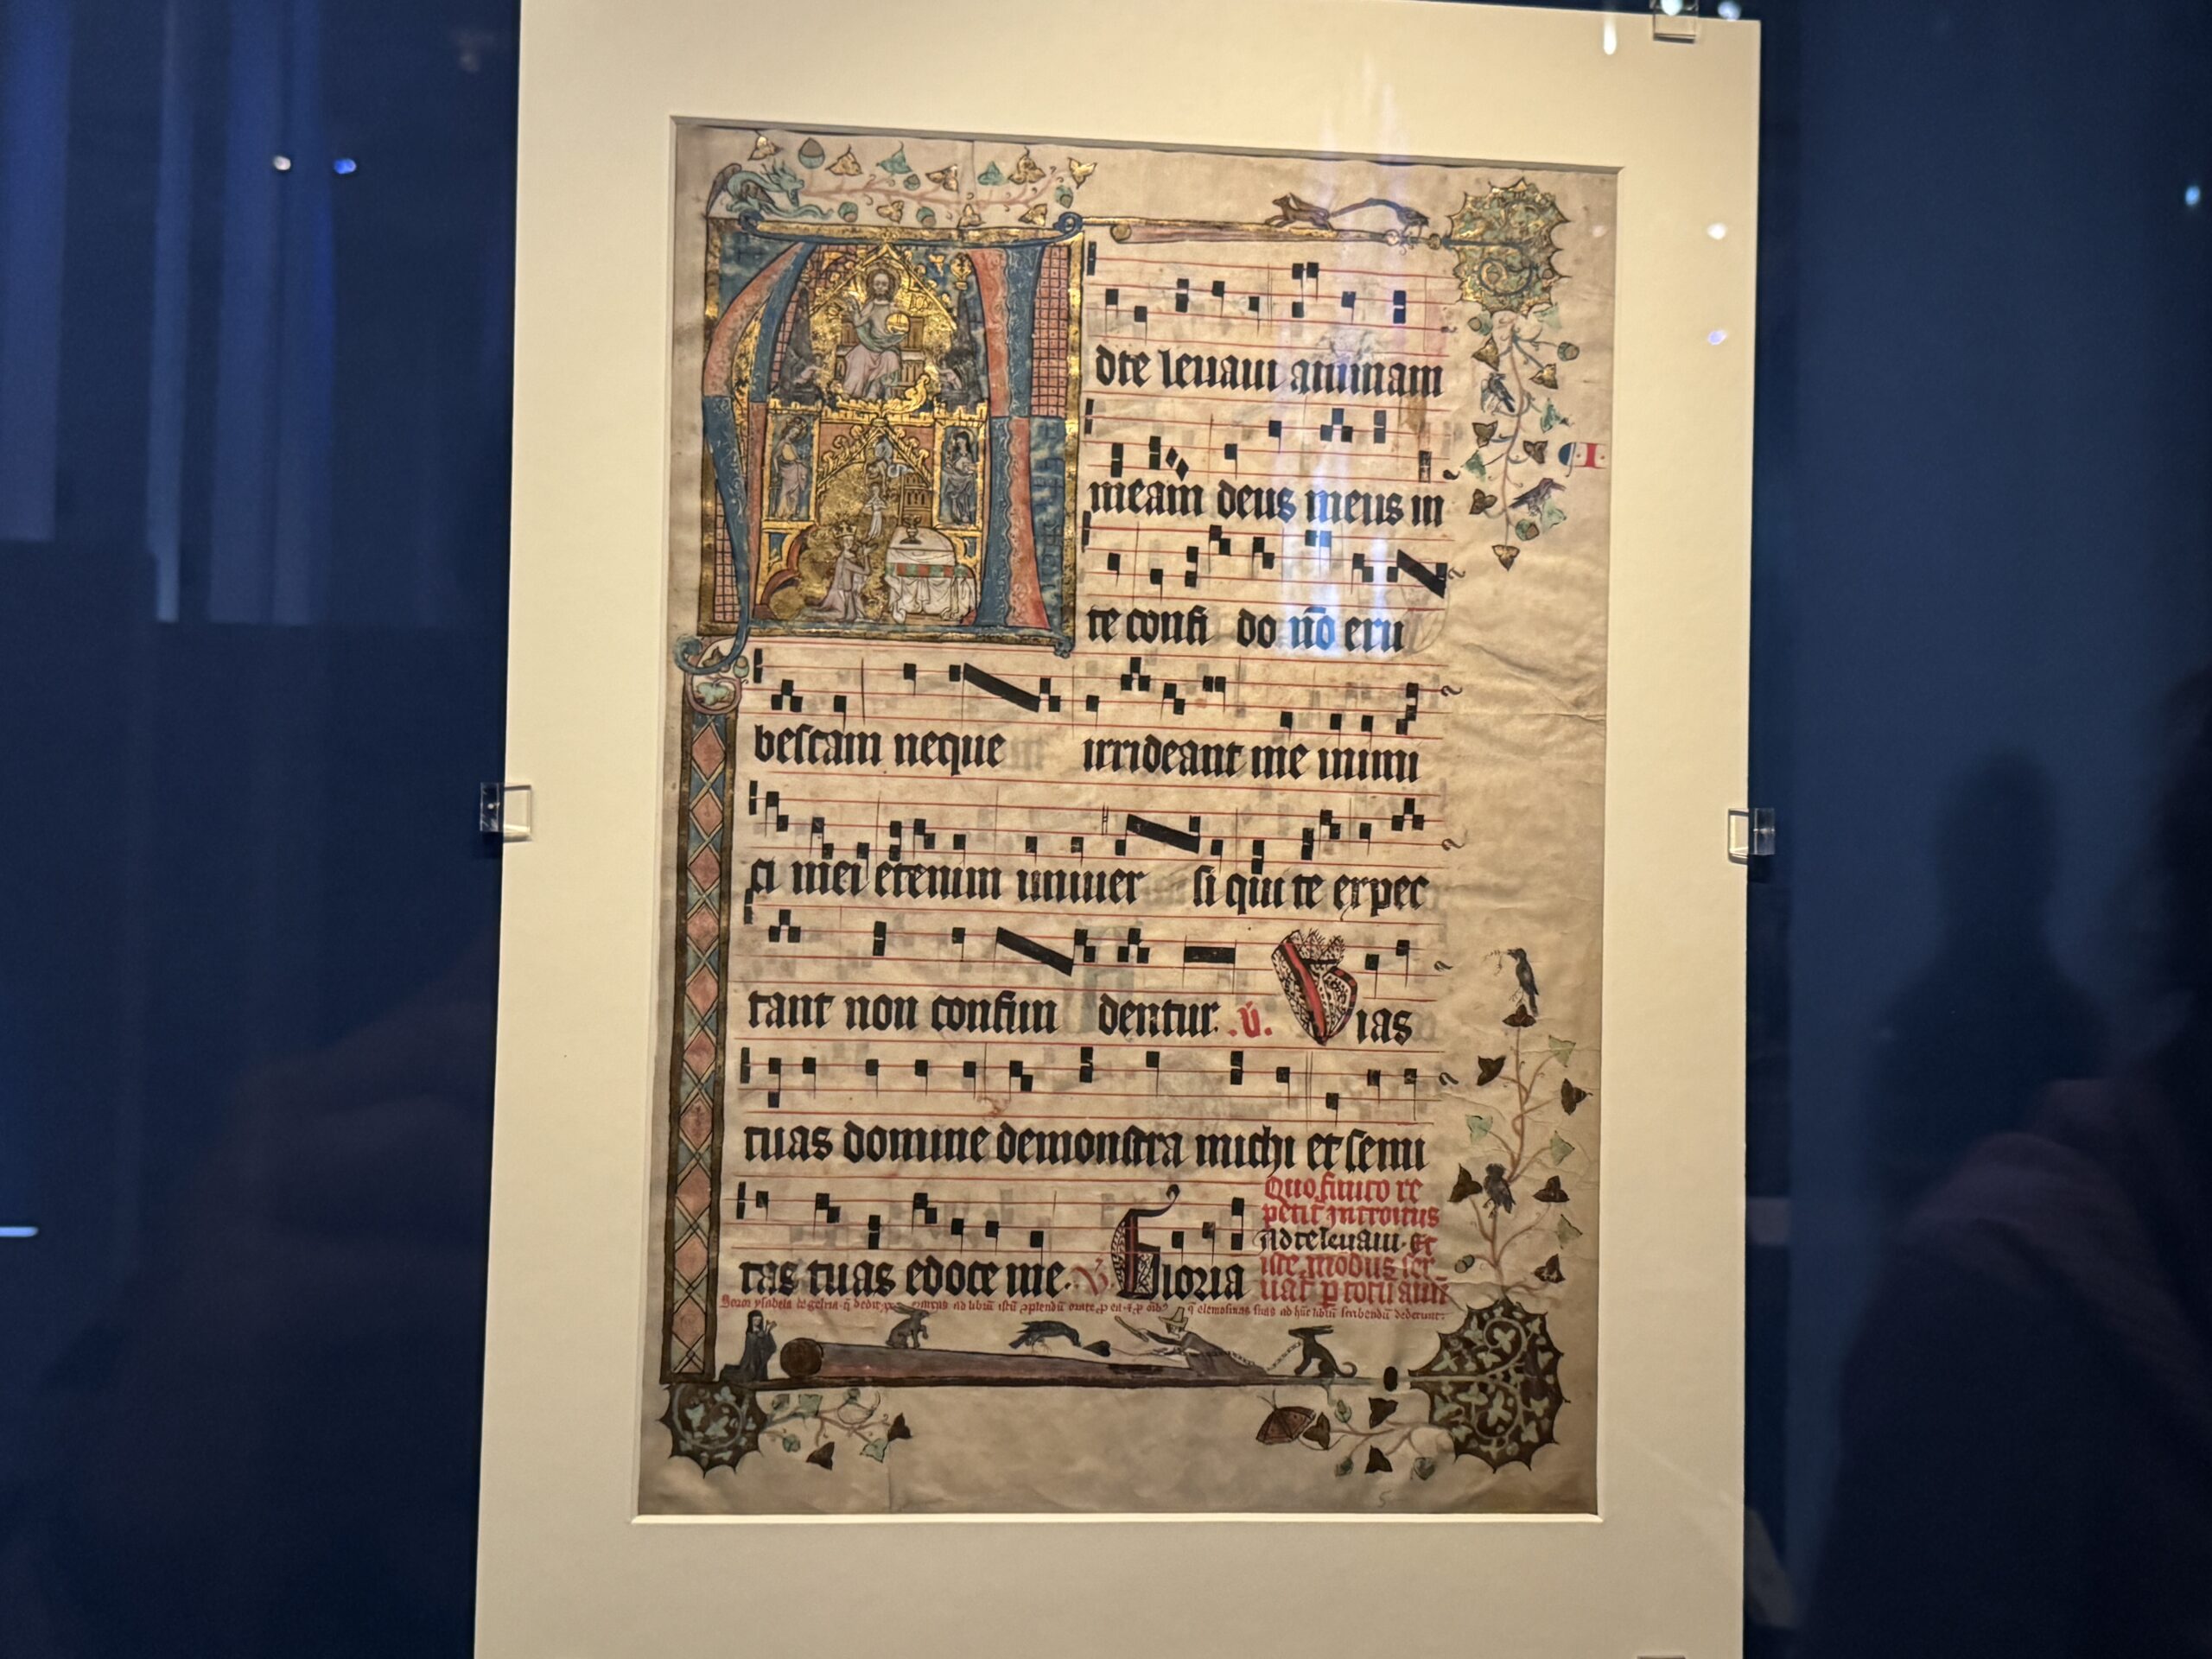 Ad te levavi animam
meam deus meus in
te confi do nō eru
bescam neque irrideant me inimi
ci mei etenim univer si qui te expec
tant non confun dentur. v̄. Vias
tuas domine demonstra michi et semi
tas tuas edoce me. V Gloria
Quo finito re
petit introitus
Ad te levavi. Et
iste modus ser
uat̄ p totū ann̄
Soror ysabela de q̄ dedit ad librū istū orate p ea et p q̄ elemosinas suas ad hūc librū scribendū dederunt.
I.